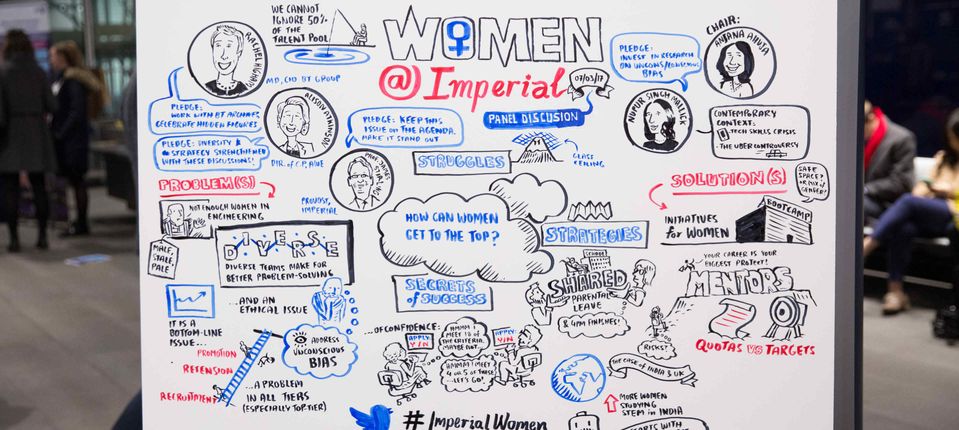 WE CANNOT
IGNORE 50%
OF THE
TALENT POOL
WOMEN
@Imperial
07/03/17
PANEL DISCUSSION
RACHEL HIGHAM
MD, CIO BT GROUP
PLEDGE:
WORK WITH BT ARCHIVES,
CELEBRATE HIDDEN FIGURES
ALISON ATKINSON
PLEDGE: DIVERSITY &
STRATEGY STRENGTHENED
WITH THESE DISCUSSIONS!
DIR. of C.P, AWE
PLEDGE: KEEP THIS
ISSUE ON THE AGENDA.
MAKE IT STAND OUT
PROF JAMES
STIRLING
PROVOST,
IMPERIAL
PLEDGE:
INVEST IN RESEARCH
ON UNCONS/CONSCIOUS
BIAS
CHAIR:
ANJANA AHUJA
NUPUR SINGH MALLICK
CONTEMPORARY
CONTEXT:
TECH SKILLS CRISIS
- THE UBER CONTROVERSY
STRUGGLES
GLASS
CEILING
PROBLEM(S)
NOT ENOUGH WOMEN IN
ENGINEERING
MALE,
STALE,
PALE
DIVERSE
DIVERSE TEAMS MAKE FOR
BETTER PROBLEM-SOLVING
HOW CAN WOMEN
GET TO THE TOP?
STRATEGIES
SECRETS
of SUCCESS
SOLUTION(S)
SAFE
SPACE?
OR MIX of
GENDER?
INITIATIVES
for WOMEN
BOOTCAMP
...AND AN
ETHICAL ISSUE
IT IS A
BOTTOM-LINE
ISSUE...
PROMOTION
RETENSION
RECRUITMENT
...A PROBLEM
IN ALL TIERS
(ESPECIALLY TOP-TIER)
ADDRESS
UNCONSCIOUS
BIAS
...OF CONFIDENCE:
APPLY:
Y/N
HMMM I
MEET 18 of
THE CRITERIA.
MAYBE NOT...
APPLY:
Y/N
HMMM I MEET
4 or 5 of THESE
...LET'S GO!
SCHOOL
SHARED
PARENTAL
LEAVE
& 4PM FINISHES!
YOUR CAREER IS YOUR
BIGGEST PROJECT!
MENTORS
RISKS?
QUOTAS VS TARGETS
THE CASE OF INDIA & UK
MORE WOMEN
STUDYING
STEM in INDIA
#ImperialWomen
STARTS WITH